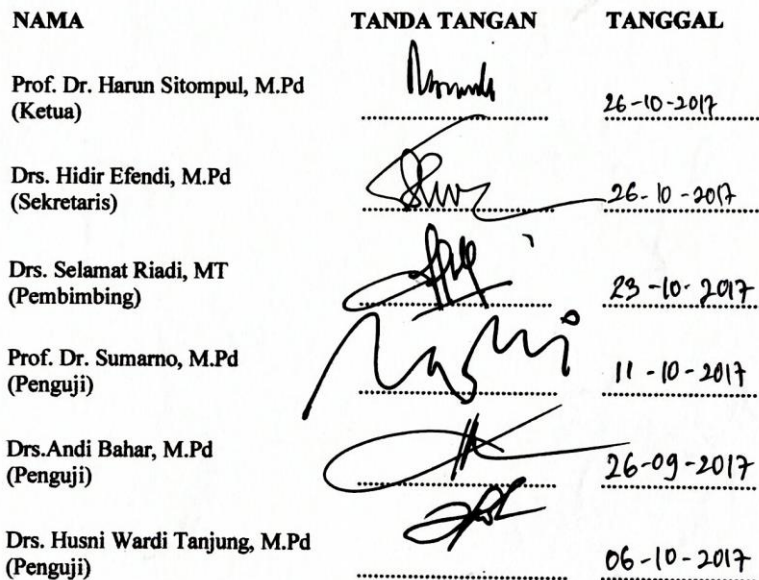 NAMA TANDA TANGAN TANGGAL
Prof. Dr. Harun Sitompul, M.Pd
(Ketua) 26-10-2017
Drs. Hidir Efendi, M.Pd
(Sekretaris) 26-10-2017
Drs. Selamat Riadi, MT
(Pembimbing) 23-10-2017
Prof. Dr. Sumarno, M.Pd
(Penguji) 11-10-2017
Drs.Andi Bahar, M.Pd
(Penguji) 26-09-2017
Drs. Husni Wardi Tanjung, M.Pd
(Penguji) 06-10-2017